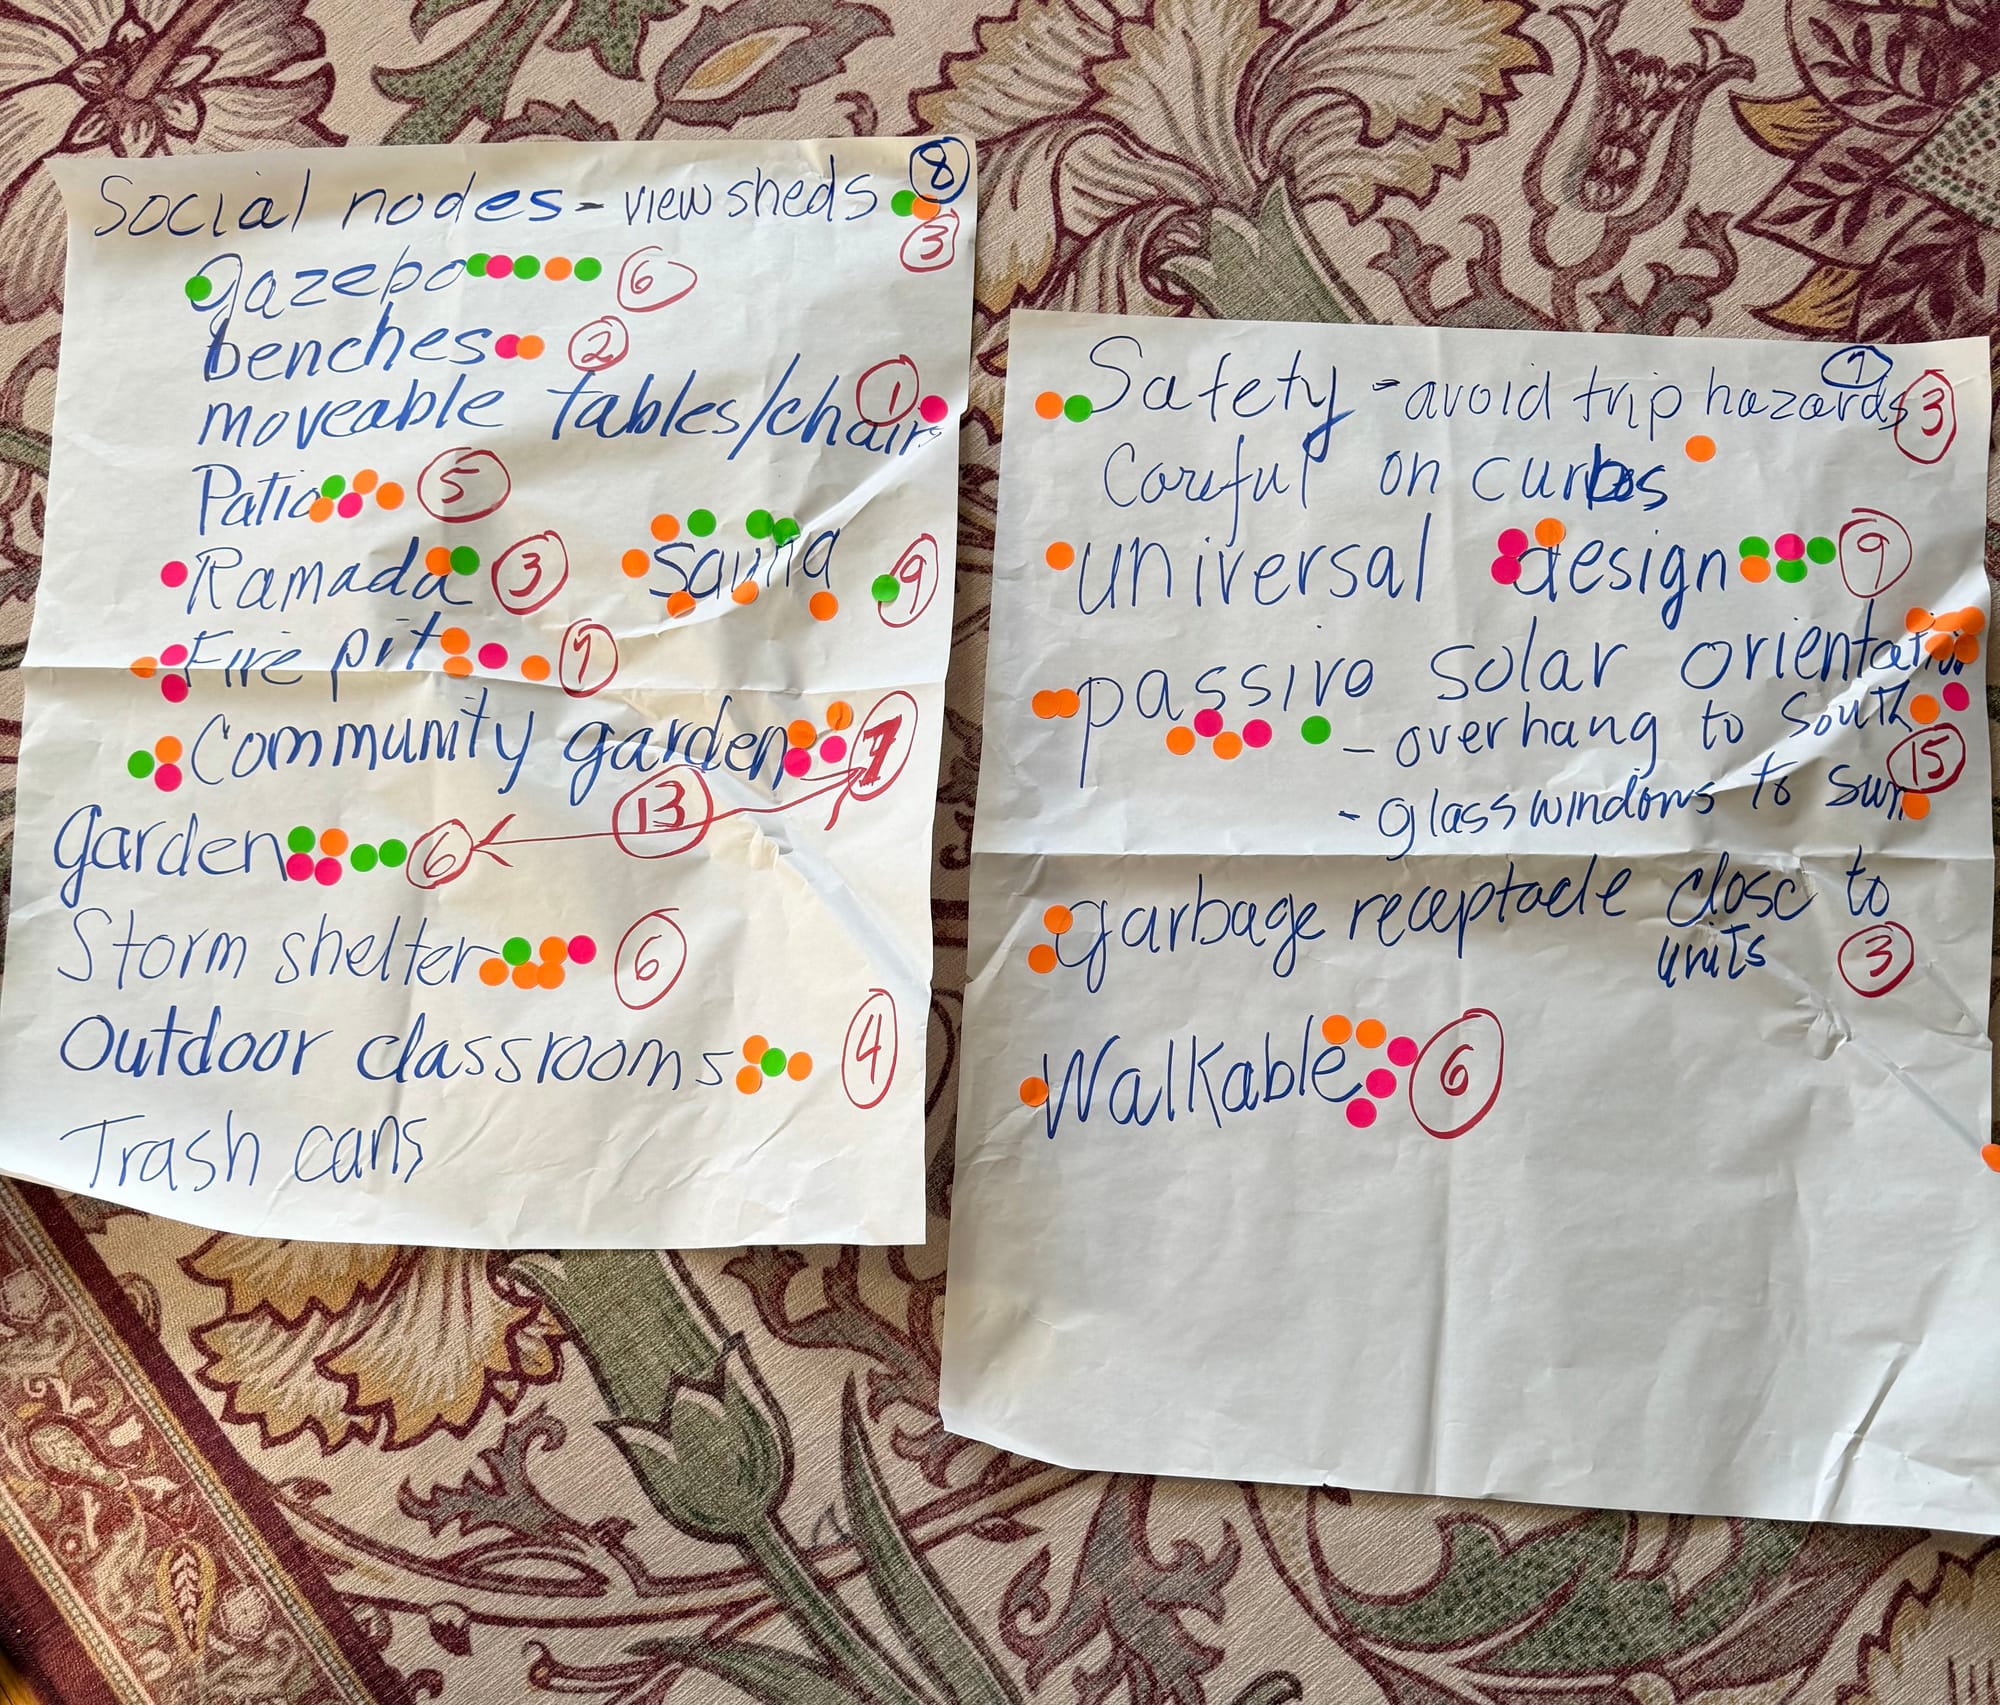 8
Social nodes - view sheds 3
gazebo 6
benches 2
moveable tables/chairs 1
Patio 5
Ramada 3 sauna 9
Fire pit 7
Community garden 7
13
garden 6
Storm shelter 6
Outdoor classrooms 4
Trash cans
7
Safety - avoid trip hazards 3
Careful on curbs
universal design 9
passive solar orientation
- overhang to South
15
- glass windows to sun
garbage receptacle close to
units 3
Walkable 6